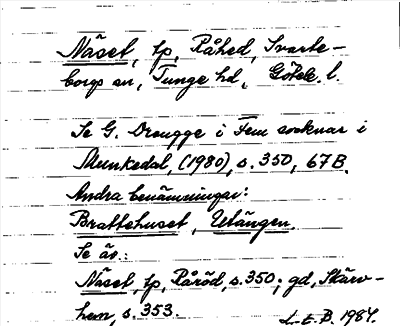 Näset, tp, Råhed, Svarte-
borgs sn, Tunge hd, Göteb. l.
Se G. Drougge i Fem socknar i
Munkedal, (1980), s. 350, 67B.
Andra benämningar:
Brattehuset, Utängen.
Se äv.:
Näset, tp, Råröd, s. 350; gd, Skärv-
hem, s. 353.
L. E. B. 1984.